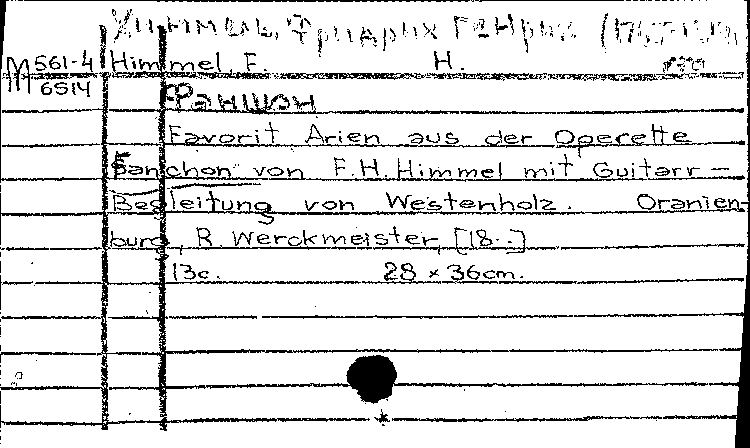 Химмель, Фридрих Генрих (1765-1814)
М 561-4 Himmel, F. H.
6514
Фаншон
Favorit Arien aus der Operette
Fanchon von F.H. Himmel mit Guitarr-
Begleitung von Westenholz. Oranien-
burg, R. Werckmeister, [18..]
13с. 28 × 36cm.